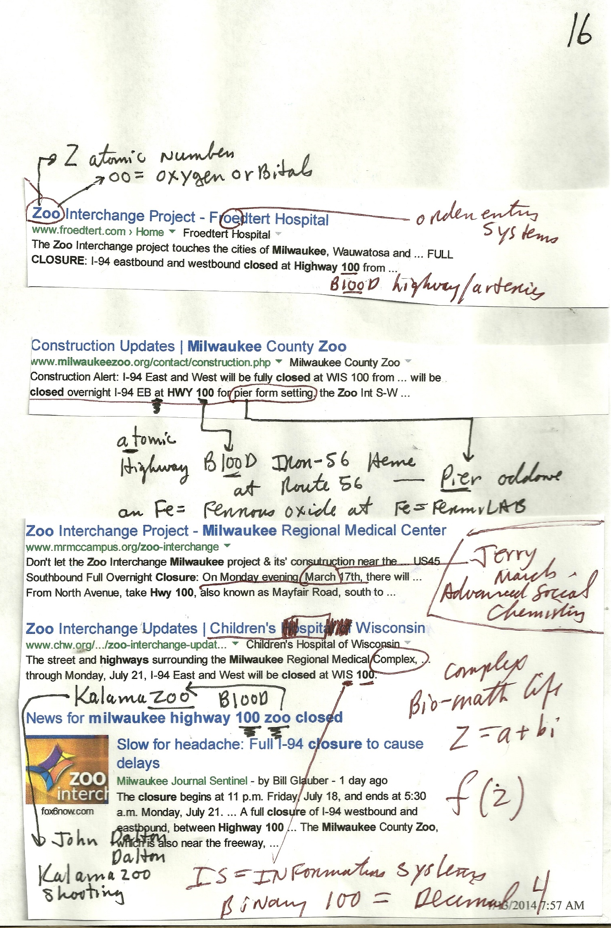 16
Z atomic Number
OO = Oxygen orBitals
Zoo Interchange Project - Froedtert Hospital
www.froedtert.com › Home Froedtert Hospital
order entry
Systems
The Zoo Interchange project touches the cities of Milwaukee, Wauwatosa and ... FULL
CLOSURE: I-94 eastbound and westbound closed at Highway 100 from ...
Bl00D highway/arteries
Construction Updates | Milwaukee County Zoo
www.milwaukeezoo.org/contact/construction.php Milwaukee County Zoo
Construction Alert: I-94 East and West will be fully closed at WIS 100 from ... will be
closed overnight I-94 EB at HWY 100 for pier form setting the Zoo Int S-W ...
atomic
Highway Bl00D Iron-56 Heme
at Route 56 — Pier oddone
an Fe = Ferrous oxide at Fe = FermiLAB
Zoo Interchange Project - Milwaukee Regional Medical Center
www.mrmccampus.org/zoo-interchange
Don't let the Zoo Interchange Milwaukee project & its' consutruction near the ... US45
Southbound Full Overnight Closure: On Monday evening, March 17th, there will ...
From North Avenue, take Hwy 100, also known as Mayfair Road, south to ...
Jerry
March -
Advanced Social
Chemistry
Zoo Interchange Updates | Children's Hospital of Wisconsin
www.chw.org/.../zoo-interchange-updat... Children's Hospital of Wisconsin
The street and highways surrounding the Milwaukee Regional Medical Complex, ...
through Monday, July 21, I-94 East and West will be closed at WIS 100.
Kalamazoo BlOOD
complex
Bio-math life
Z = a + bi
f(z)
News for milwaukee highway 100 zoo closed
Slow for headache: Full I-94 closure to cause
delays
Milwaukee Journal Sentinel - by Bill Glauber - 1 day ago
The closure begins at 11 p.m. Friday, July 18, and ends at 5:30
a.m. Monday, July 21. ... A full closure of I-94 westbound and
eastbound, between Highway 100 ... The Milwaukee County Zoo,
which is also near the freeway, ...
zoo
interch
fox6now.com
John Dalton
Dalton
Kalamazoo
Shooting
IS = INFormation Systems
Binary 100 = Decimal 4
/2014 7:57 AM